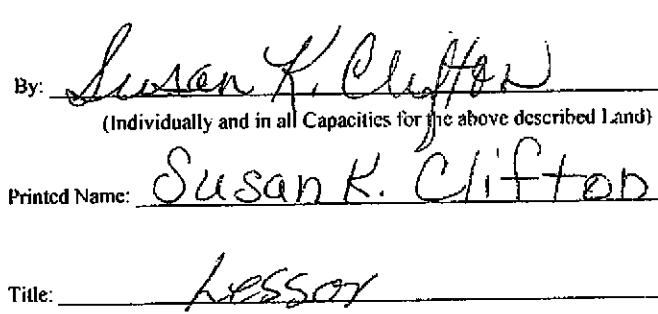 By: Susan K. Clifton
(Individually and in all Capacities for the above described Land)
Printed Name: Susan K. Clifton
Title: Lessor